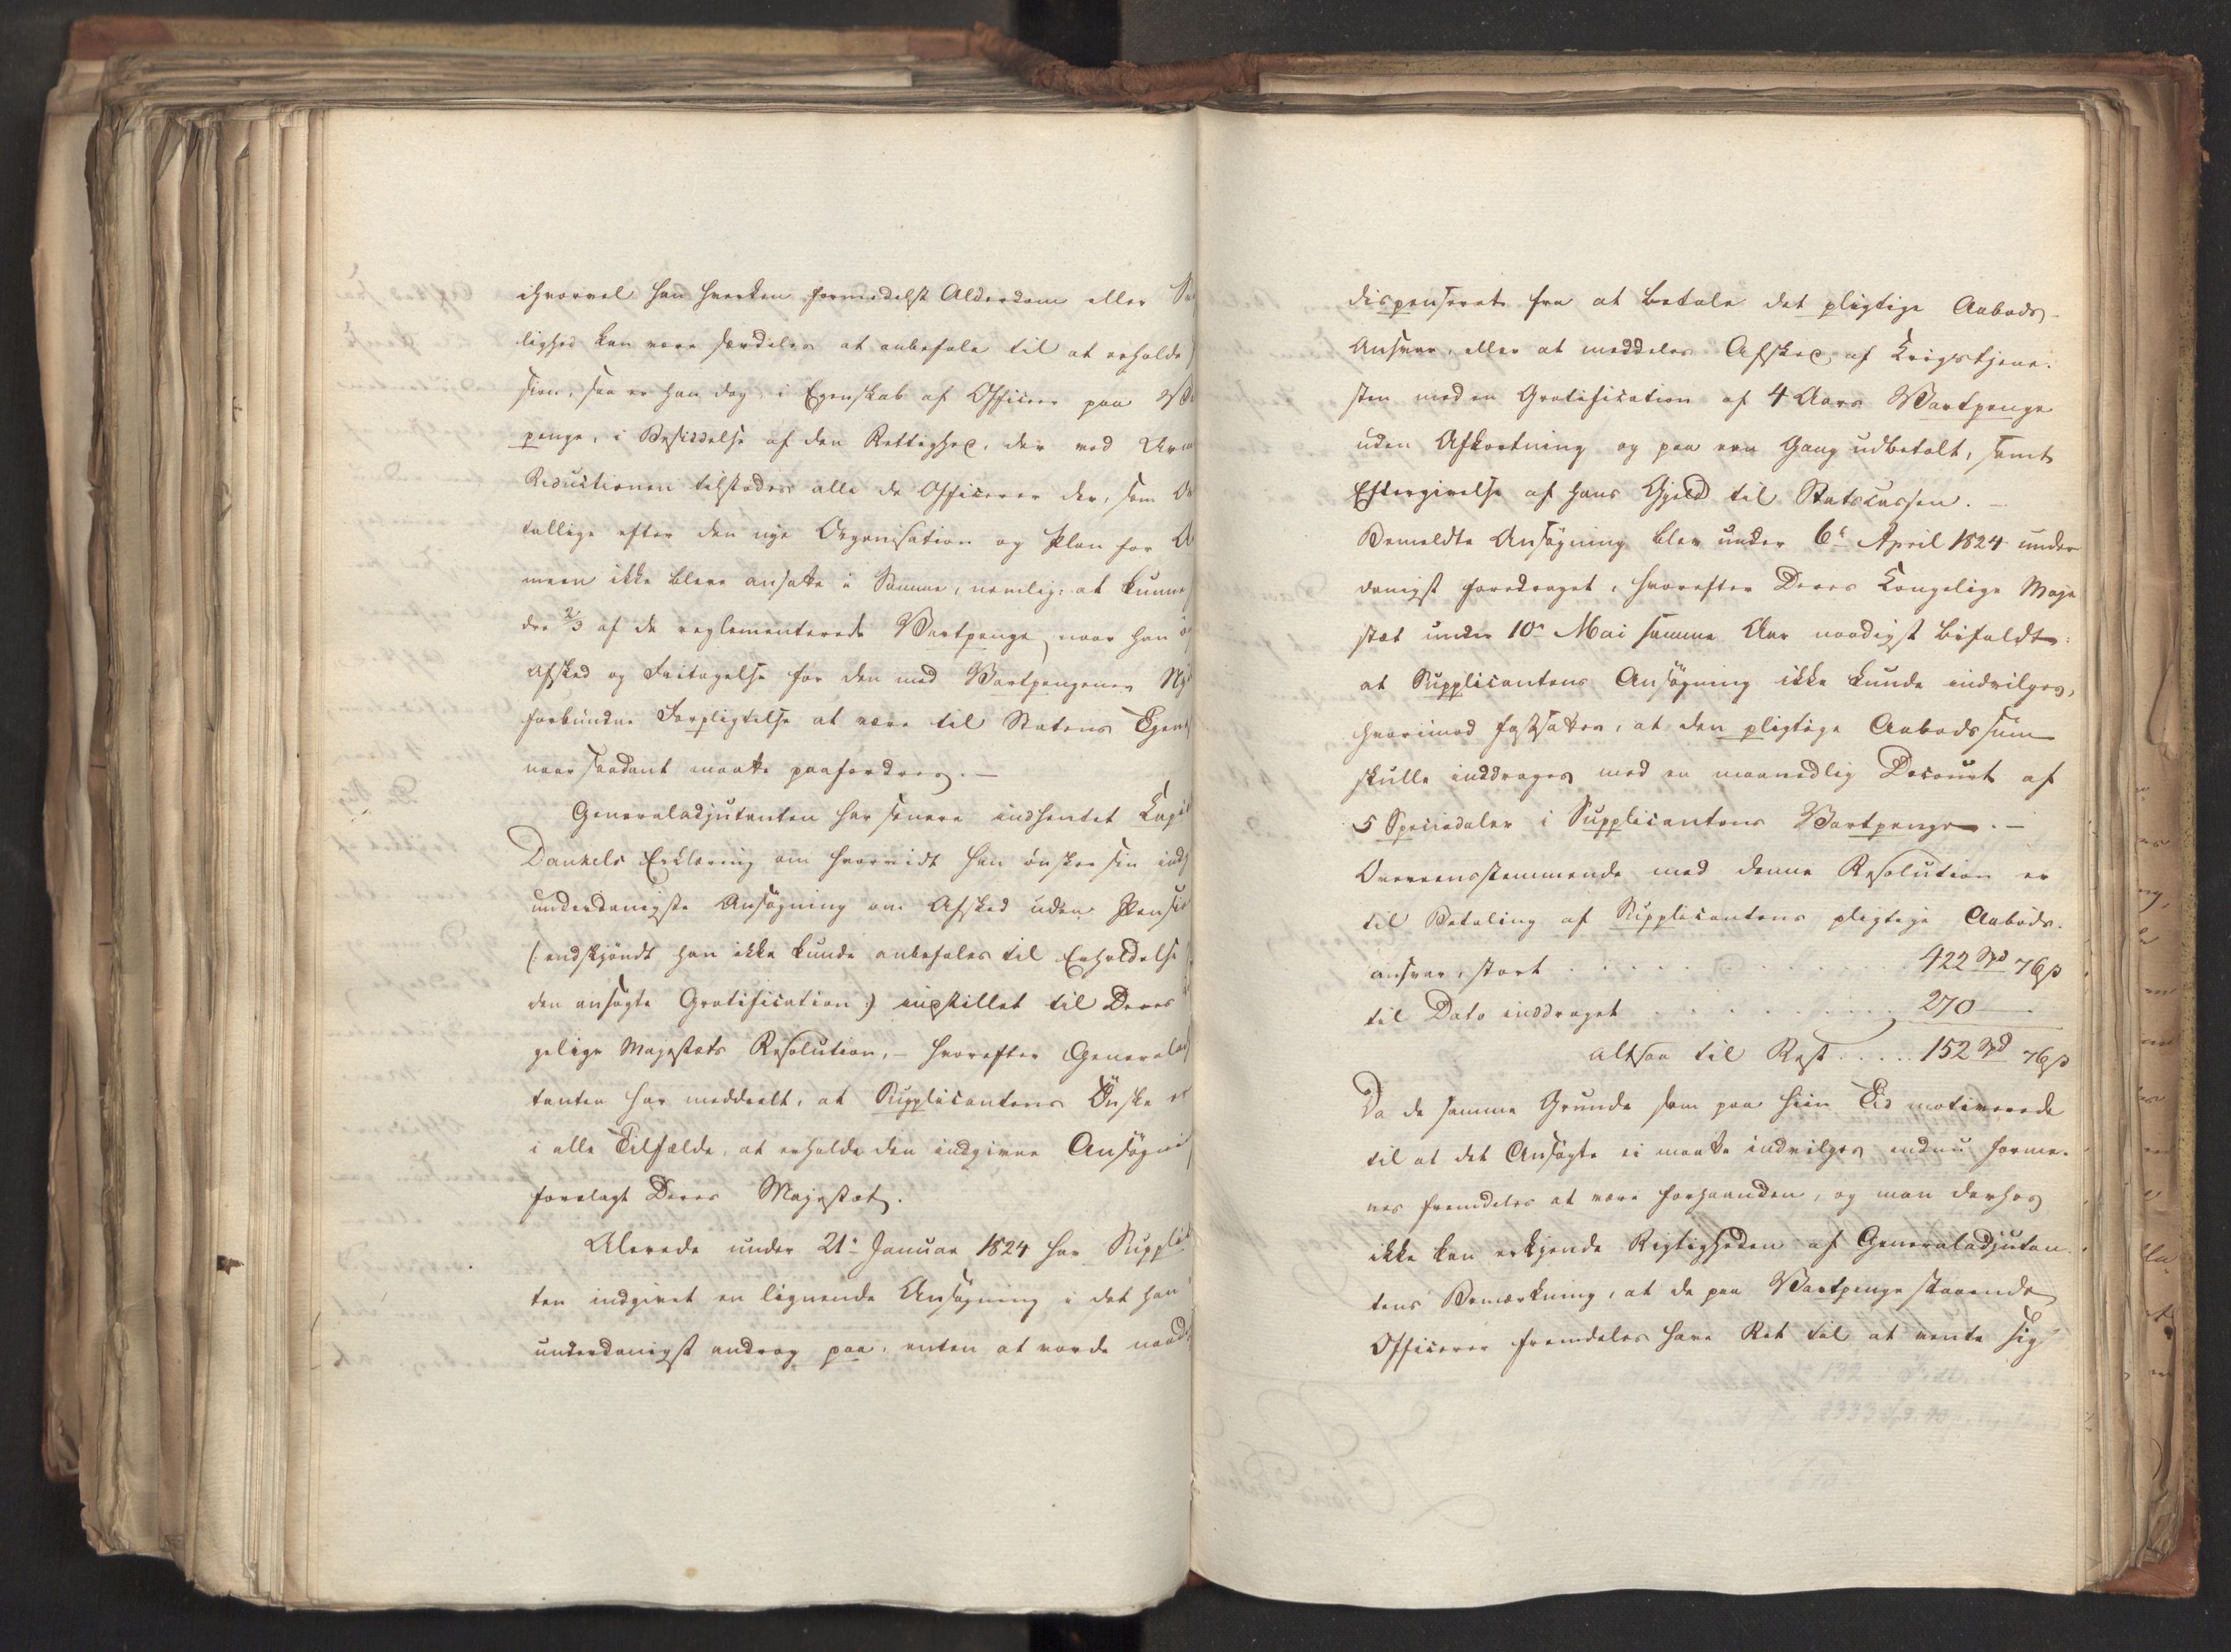 ihvorvel han hverken formedelst Alderdom eller
lighed kan være særdeles at anbefale til at erholde
sion, saa er han dog i Egenskab af Officeer paa
penge, i Besiddelse af den Rettighed, der ved
Reductionen tilstodes alle de Officerer der, som
tallige efter den nye Organisation og Plan for
meen ikke bleve ansatte i Samme, nemlig: at kunne
dre 2/3 af de reglementerede Vartpenge, naar han
Afsked og Fritagelse for den med Vartpengenes
forbundne Forpligtelse at være til Statens
naar saadant maatte paafordres. —
Generaladjutanten har senere indhentet
Dankels Erklæring om hvorvidt han ønsker sin
underdanigste Ansøgning om Afsked uden
(: endskjøndt han ikke kunde anbefales til Erholdelse
den ansøgte Gratification :) indstillet til Deres
gelige Majestæts Resolution, — hvorefter
tanten har meddeelt, at Supplicantens Ønske er
i alle Tilfælde, at erholde den indgivne
forelagt Deres Majestæt.
Allerede under 21. Januar 1824 har
ten indgivet en lignende Ansøgning i det han
underdanigst androg paa, enten at vorde
dispenseret fra at betale det pligtige Aabods-
Ansvar, eller at meddeles Afsked af Krigstjene-
sten med en Gratification af 4 Aars Vartpenge
uden Afkortning og paa een Gang udbetalt, samt
Eftergivelse af hans Gjeld til Statscassen. —
Bemeldte Ansøgning blev under 6te April 1824 under-
danigst foredraget, hvorefter Deres Kongelige Maje
stæt under 10de Mai samme Aar naadigst bifaldt:
at Supplicantens Ansøgning ikke kunde indvilges,
hvorimod fastsattes, at den pligtige Aabodssum
skulle inddrages med en maanedlig Decourt af
5 Speciedaler i Supplicantens Vartpenge. —
Overeensstemmende med denne Resolution er
til Betaling af Supplicantens pligtige Aabods-
ansvar, stort . . . . . . . . . 422 Spd 76 ß
til Dato inddraget . . . . . . . . . 270 —
altsaa til Rest . . . . . 152 Spd 76 ß
Da de samme Grunde som paa hiin Tid motiverede
til at det Ansøgte ei maatte indvilges endnu forme-
nes fremdeles at være forhaanden, og man derhos
ikke kan erkjende Rigtigheden af Generaladjutan-
tens Bemærkning, at de paa Vartpenge staaende
Officerer fremdeles have Ret til at vente sig